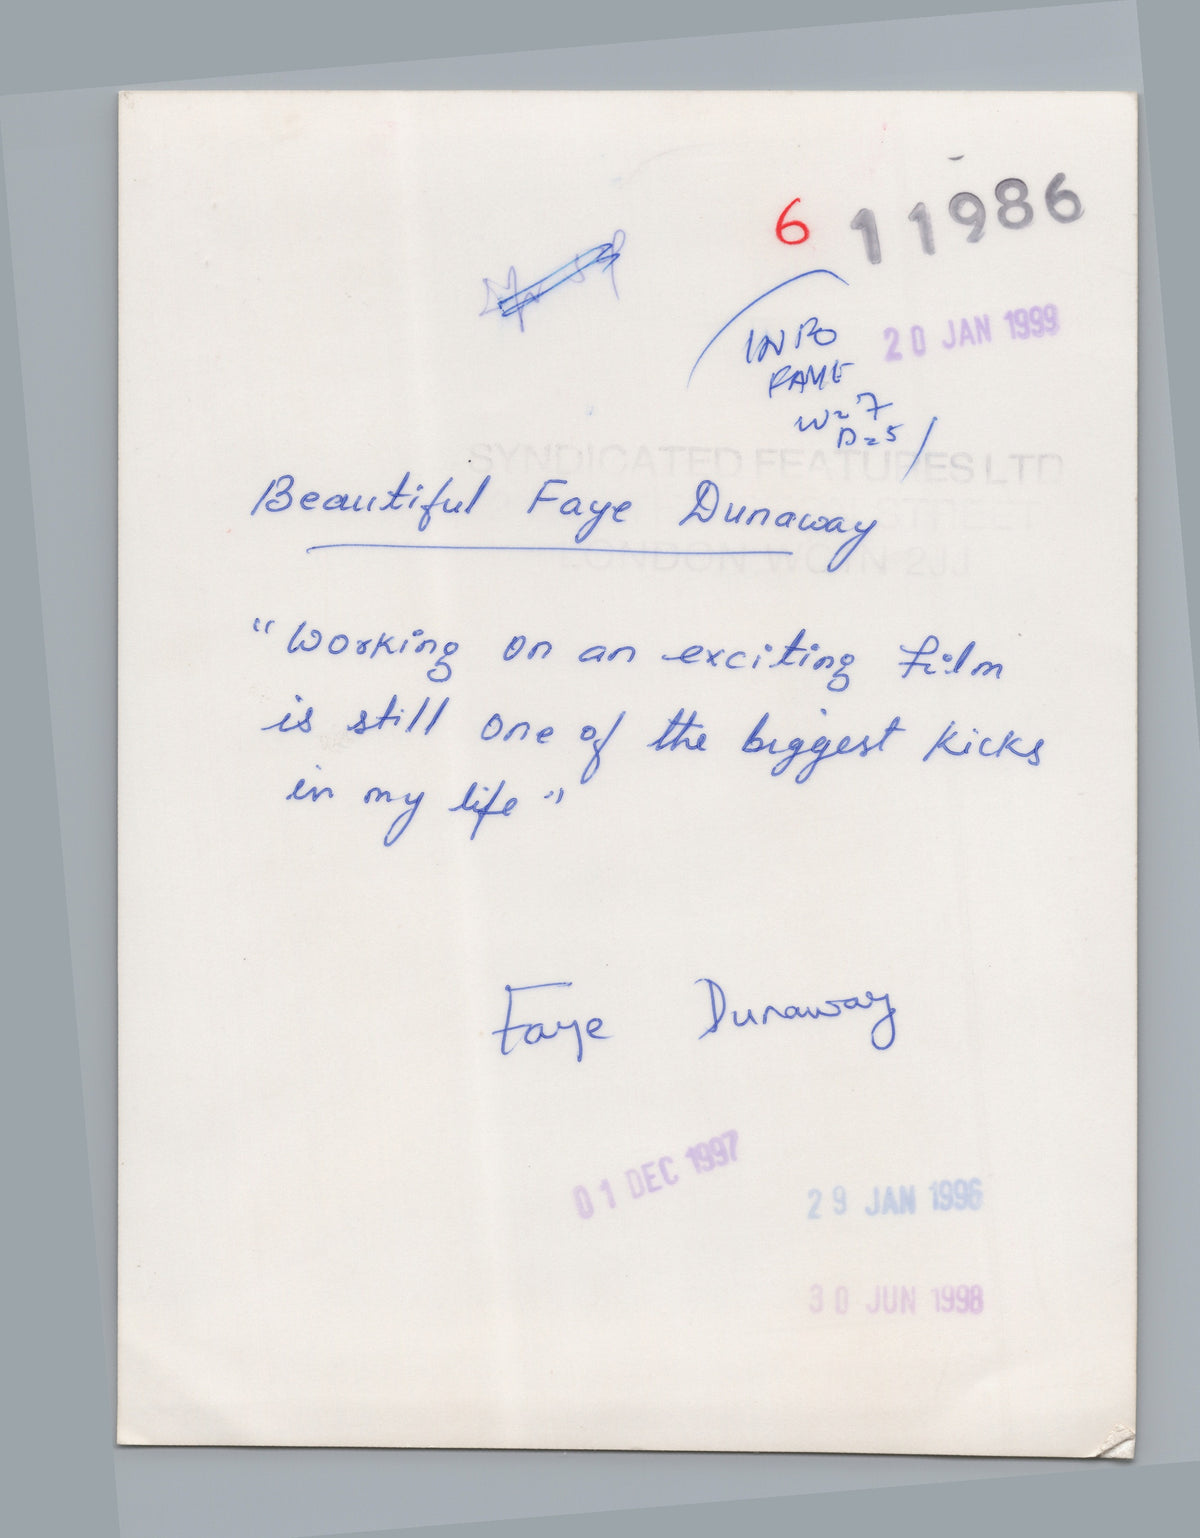 6 11986
INFO
FAME
W=7
D=5
20 JAN 1999
SYNDICATED FEATURES LTD
LONDON WC1N 2JJ
Beautiful Faye Dunaway
"Working on an exciting film
is still one of the biggest kicks
in my life"
Faye Dunaway
01 DEC 1997
29 JAN 1996
30 JUN 1998